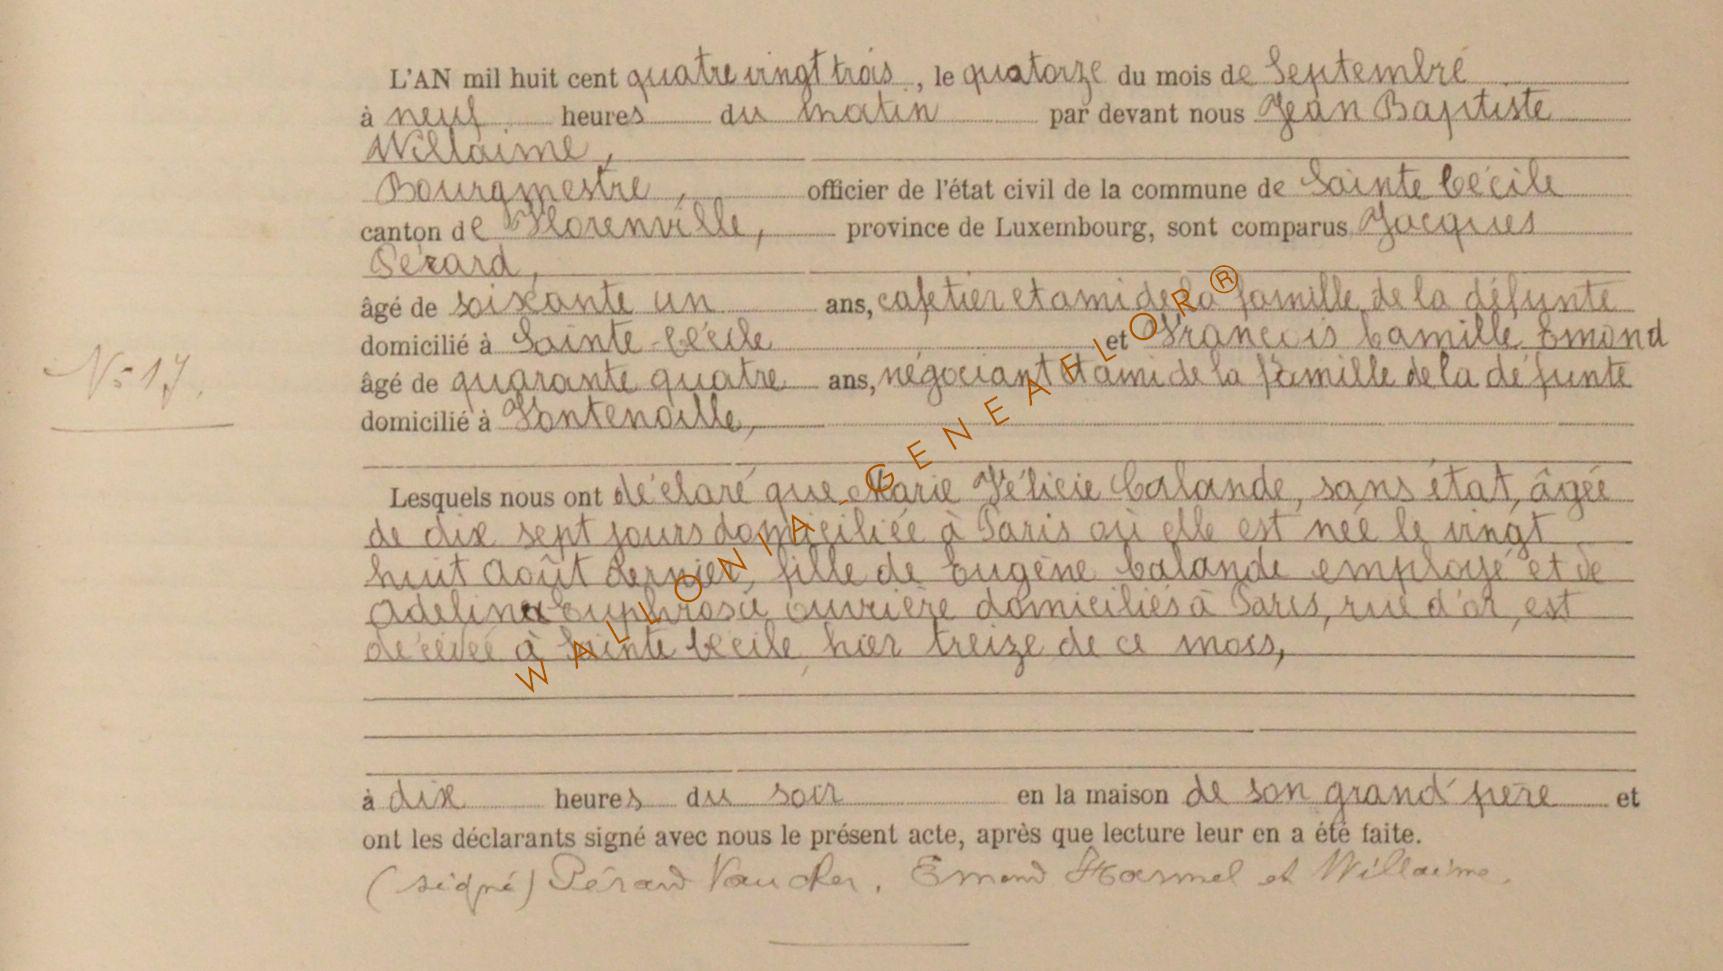 L'AN mil huit cent quatre vingt trois, le quatorze du mois de Septembre
à neuf heures du matin par devant nous Jean Baptiste
Willaime,
Bourgmestre, officier de l'état civil de la commune de Sainte Cécile
canton de Florenville, province de Luxembourg, sont comparus Jacques
Pérard,
âgé de soixante un ans, cafetier et ami de la famille de la défunte
domicilié à Sainte-Cécile et François Camille Emond
N° 17.
âgé de quarante quatre ans, négociant et ami de la famille de la défunte
domicilié à Fontenoille,
Lesquels nous ont déclaré que Marie Félicie Calande, sans état, âgée
de dix sept jours domiciliée à Paris où elle est née le vingt
huit Août dernier, fille de Eugène Calande employé et de
Adelina Euphrosie ouvrière domiciliés à Paris, rue d'or, est
décédée à Sainte Cécile hier treize de ce mois,
à dix heures du soir en la maison de son grand père et
ont les déclarants signé avec nous le présent acte, après que lecture leur en a été faite.
(signé) Pérard Vaucher, Emond Harmel et Willaime.
WALLONIA-GENEAHLOR®